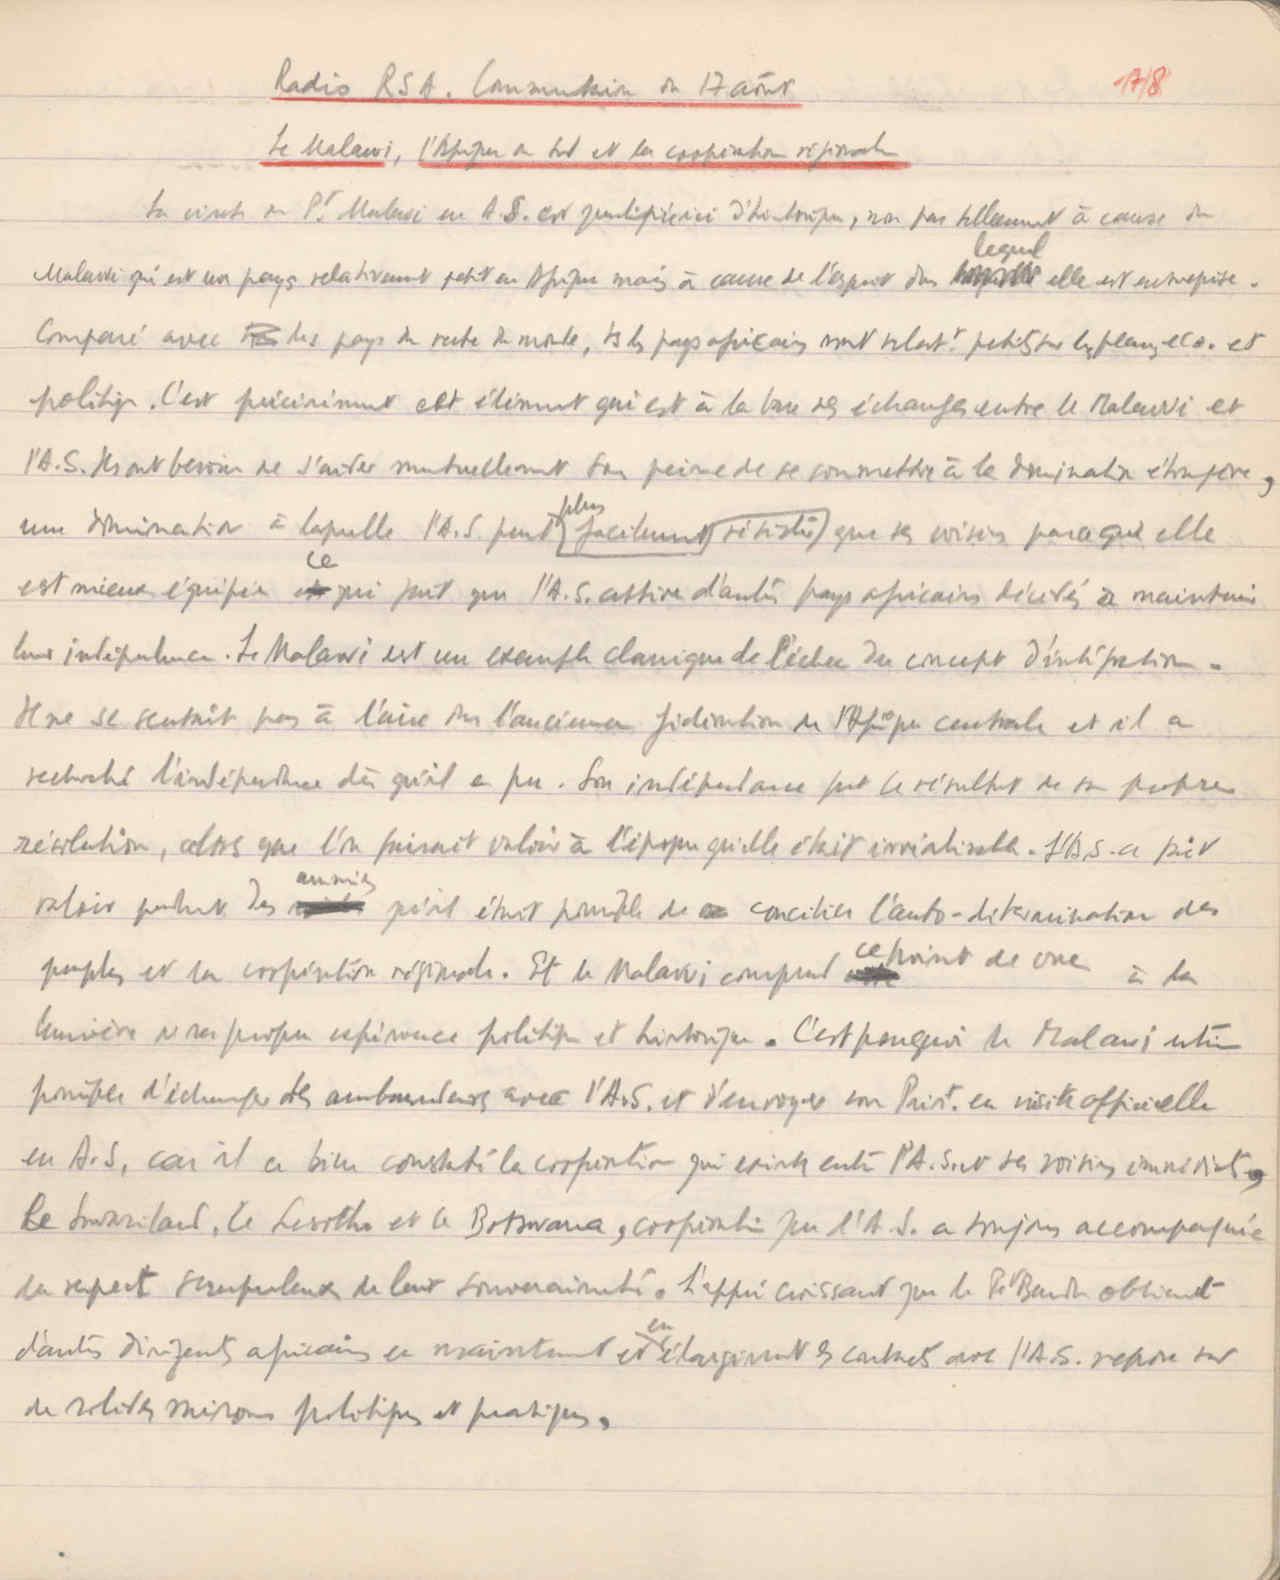 Radio RSA. Commentaire du 17 août
17/8
Le Malawi, l'Afrique du Sud et la coopération régionale
La visite du Pt Malawi en A.S. est qualifiée ici d'historique, non pas tellement à cause du
lequel
Malawi qui est un pays relativement petit en Afrique mais à cause de l'esprit dans elle est entreprise.
Comparé avec les pays du reste du monde, ts les pays africains sont relatt. petits sur les plans eco. et
politiq. C'est précisément cet élément qui est à la base des échanges entre le Malawi et
l'A.S. Ils ont besoin de s'aider mutuellement sous peine de se soumettre à la domination étrangère,
plus
une domination à laquelle l'A.S. peut facilement résister que ses voisins parce que elle
ce
est mieux équipée qui fait que l'A.S. attire d'autres pays africains décidés à maintenir
leur indépendance. Le Malawi est un exemple classique de l'échec du concept d'intégration.
Il ne se sentait pas à l'aise dans l'ancienne fédération de l'Afrique centrale et il a
recherché l'indépendance dès qu'il a pu. Son indépendance fut le résultat de sa propre
résolution, alors que l'on faisait valoir à l'époque qu'elle était irréalisable. L'A.S. a fait
années
valoir pendant des qu'il était possible de concilier l'auto-détermination des
peuples et la coopération régionale. Et le Malawi comprend ce point de vue à la
lumière de sa propre expérience politique et historique. C'est pourquoi le Malawi estime
possible d'échanger des ambassadeurs avec l'A.S. et d'envoyer son Présit. en visite officielle
en A.S, car il a bien constaté la coopération qui existe entre l'A.S. et ses voisins immédiats,
le Swaziland, le Lesotho et le Botswana, coopération que l'A.S. a toujours accompagnée
du respect scrupuleux de leur souveraineté. L'appui croissant que le Pt Banda obtient
en
d'autres dirigeants africains en maintenant et élargissant les contacts avec l'A.S. repose sur
de solides raisons politiques et pratiques.